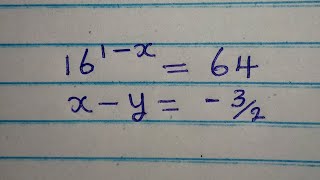 16^{1-x} = 64
x - y = - 3/2